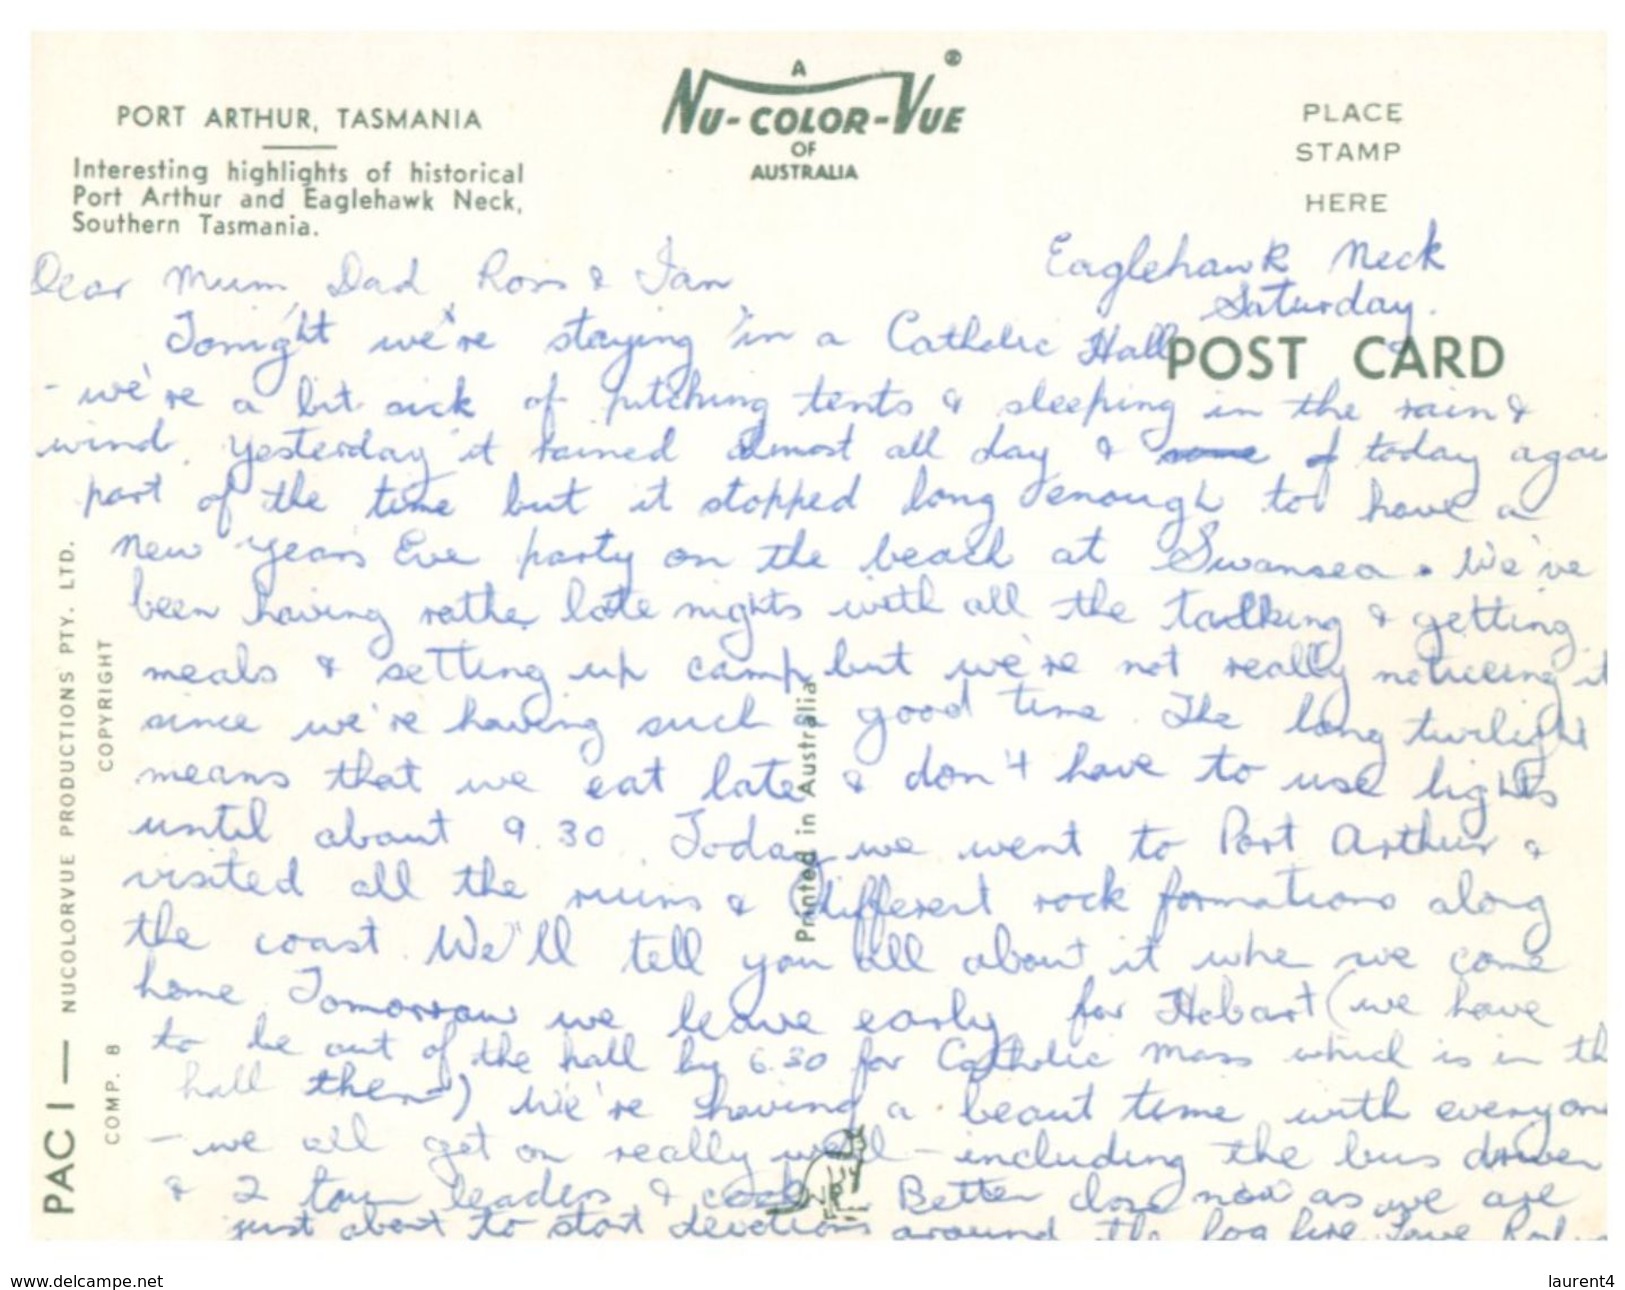 PORT ARTHUR, TASMANIA
Interesting highlights of historical
Port Arthur and Eaglehawk Neck,
Southern Tasmania.
A
NU-COLOR-VUE ®
OF
AUSTRALIA
PLACE
STAMP
HERE
POST CARD
Eaglehawk Neck
Saturday.
Dear Mum, Dad Ross & Ian
Tonight we're staying in a Catholic Hall
- we're a bit sick of pitching tents & sleeping in the rain &
wind. Yesterday it rained almost all day & some of today agai
part of the time but it stopped long enough to have a
New Years Eve party on the beach at Swansea. We've
been having rathe late nights with all the talking & getting
meals & setting up camp but we're not really noticeing it
since we're having such a good time. The long twilight
means that we eat late & don't have to use lights
until about 9.30. Today we went to Port Arthur &
visited all the ruins & different rock formations along
the coast. We'll tell you all about it whe we come
home. Tomorrow we leave early for Hobart (we have
to be out of the hall by 6.30 for Catholic Mass which is in th
hall then) We're having a beaut time with everyone
- we all get on really well - including the bus driver
& 2 tour leaders & cook. Better close now as we are
just about to start devotions around the log fire. Love
PAC 1 — NUCOLORVUE PRODUCTIONS PTY. LTD.
COMP. 8
COPYRIGHT
Printed in Australia
www.delcampe.net
laurent4